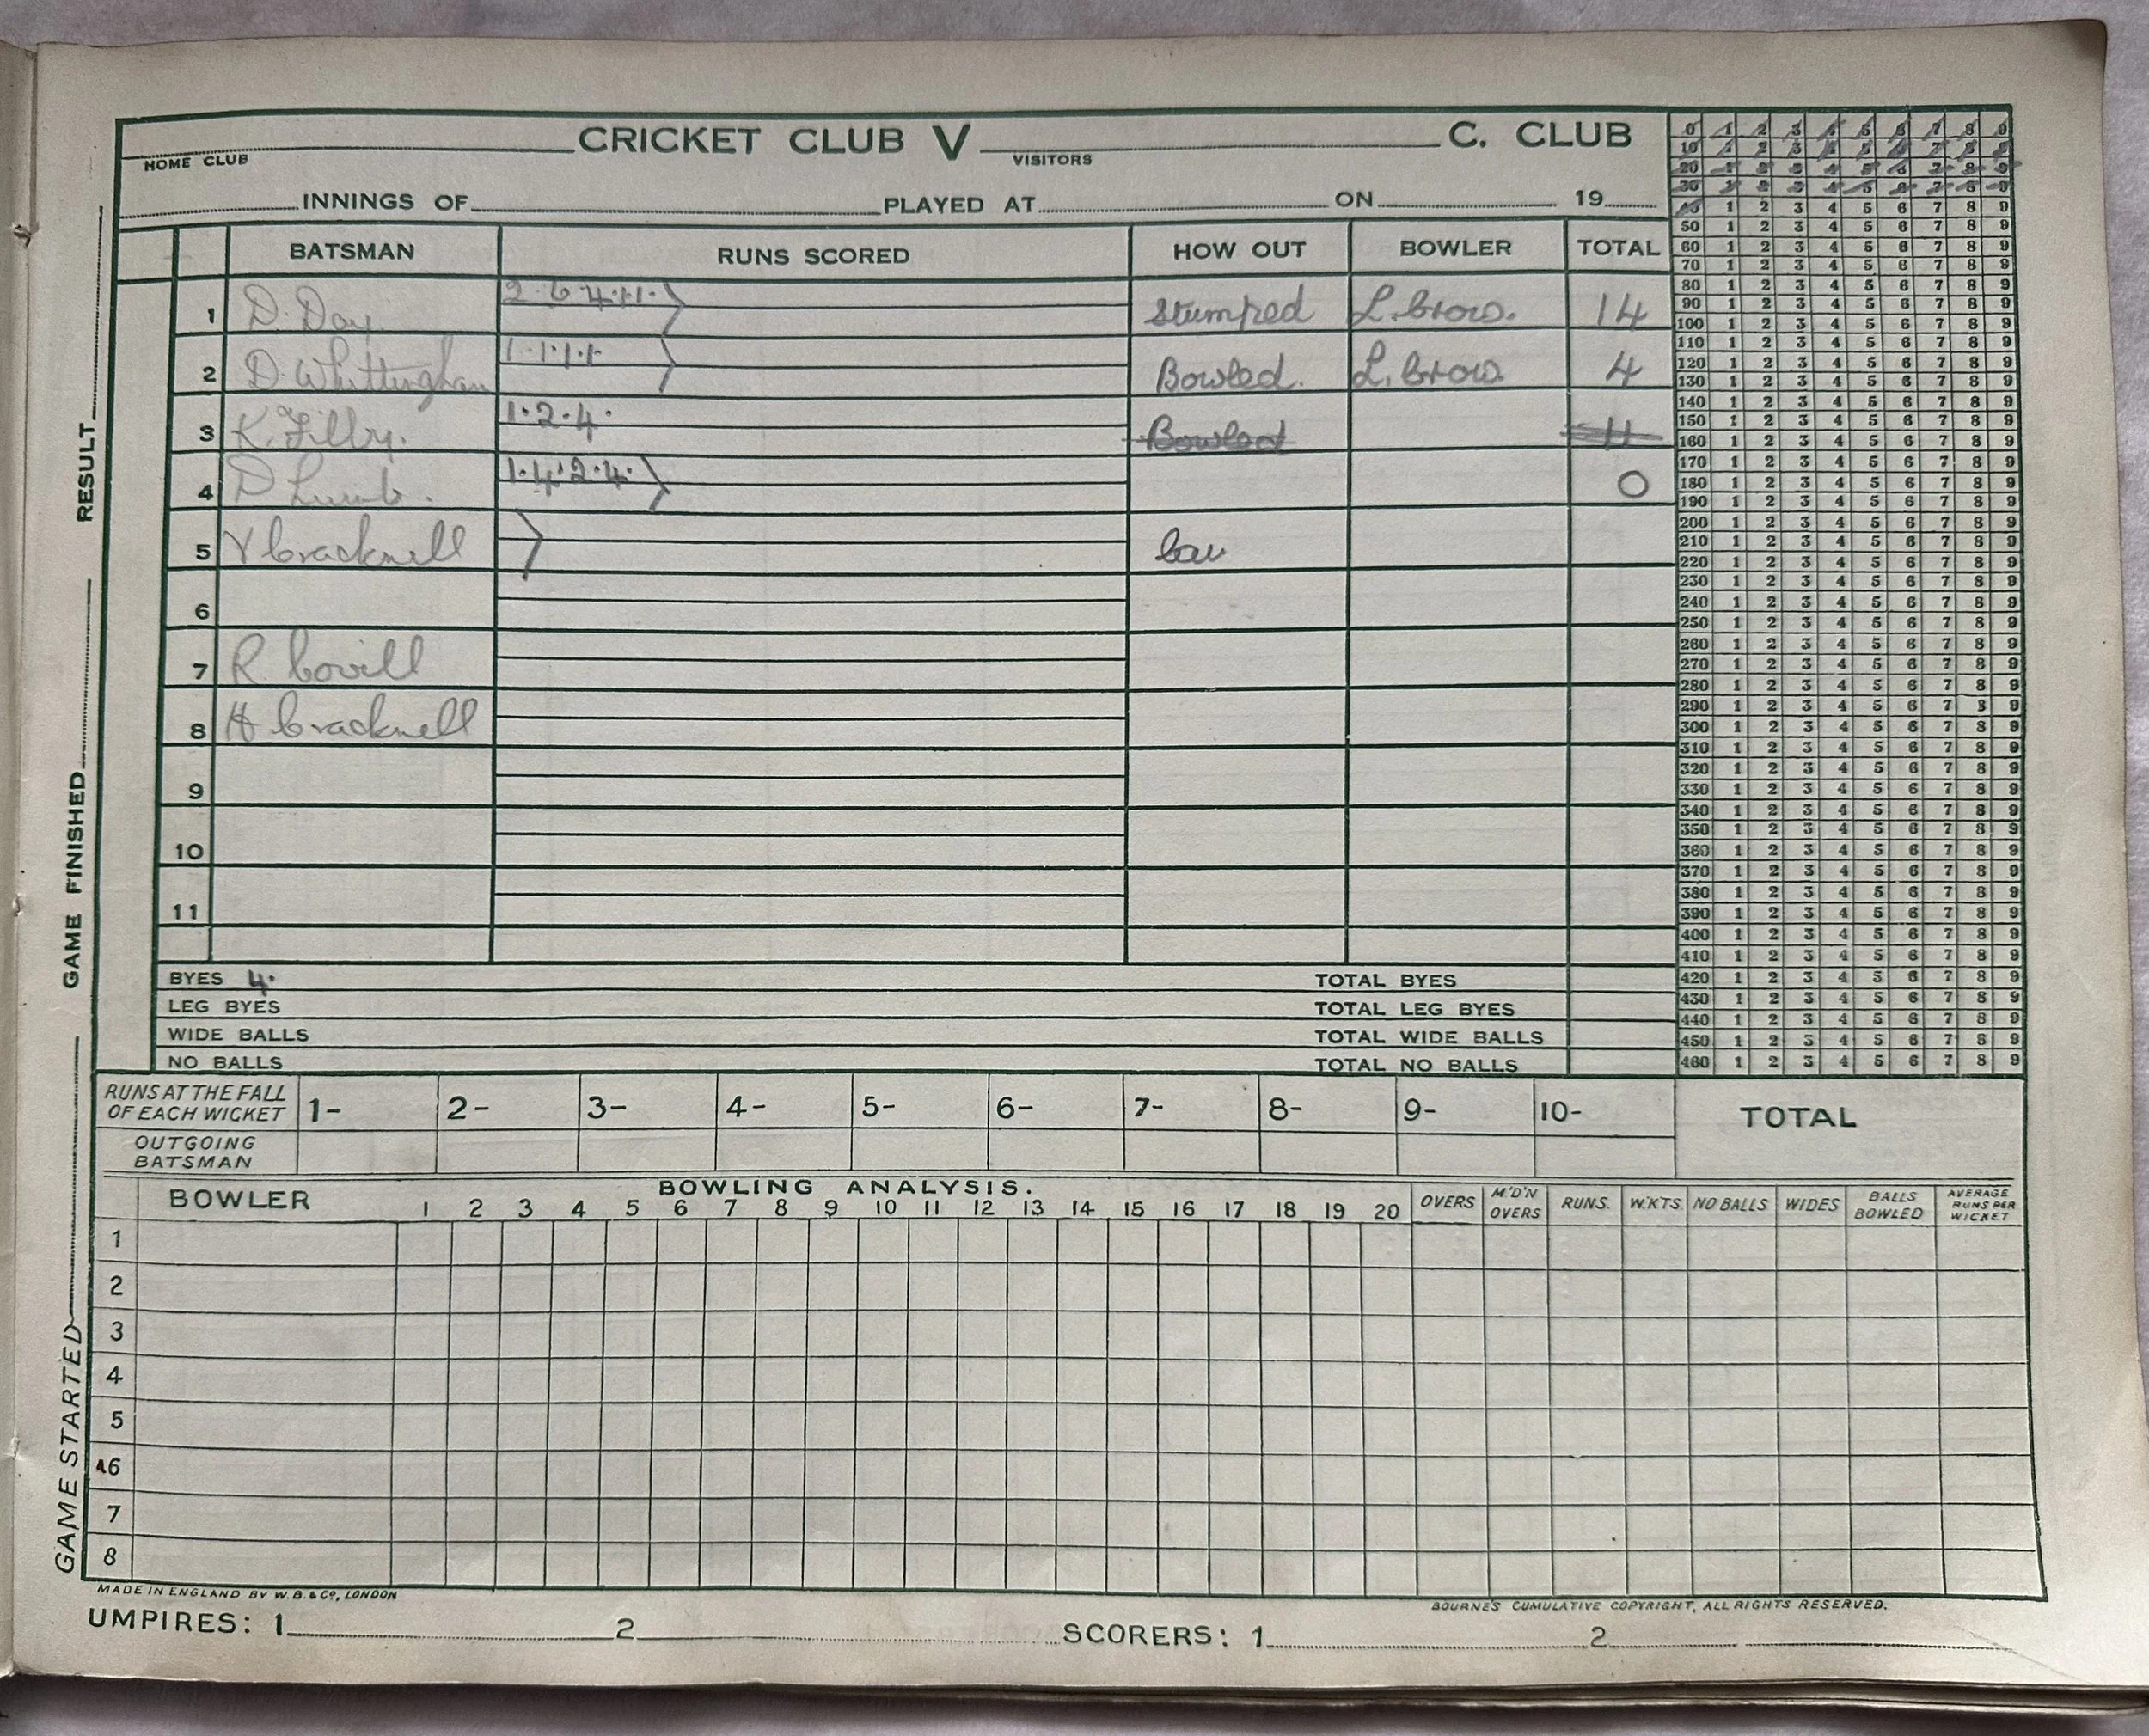 CRICKET CLUB V C. CLUB
HOME CLUB VISITORS
INNINGS OF PLAYED AT ON 19
BATSMAN RUNS SCORED HOW OUT BOWLER TOTAL
1 D. Day 2 6 4 1 1 Stumped L. brow. 14
2 D. Whittingham 1 1 1 1 Bowled. L. brow 4
3 K. Filby. 1 · 2 · 4 · Bowled 11
4 D Lumb. 1 · 4 · 2 · 4 · 0
5 V Cracknell
6
7 R Covill
8 H Cracknell
9
10
11
BYES 4 · TOTAL BYES
LEG BYES TOTAL LEG BYES
WIDE BALLS TOTAL WIDE BALLS
NO BALLS TOTAL NO BALLS
0 1 2 3 4 5 6 7 8 9
10 1 2 3 4 5 6 7 8 9
20 1 2 3 4 5 6 7 8 9
30 1 2 3 4 5 6 7 8 9
40 1 2 3 4 5 6 7 8 9
50 1 2 3 4 5 6 7 8 9
60 1 2 3 4 5 6 7 8 9
70 1 2 3 4 5 6 7 8 9
80 1 2 3 4 5 6 7 8 9
90 1 2 3 4 5 6 7 8 9
100 1 2 3 4 5 6 7 8 9
110 1 2 3 4 5 6 7 8 9
120 1 2 3 4 5 6 7 8 9
130 1 2 3 4 5 6 7 8 9
140 1 2 3 4 5 6 7 8 9
150 1 2 3 4 5 6 7 8 9
160 1 2 3 4 5 6 7 8 9
170 1 2 3 4 5 6 7 8 9
180 1 2 3 4 5 6 7 8 9
190 1 2 3 4 5 6 7 8 9
200 1 2 3 4 5 6 7 8 9
210 1 2 3 4 5 6 7 8 9
220 1 2 3 4 5 6 7 8 9
230 1 2 3 4 5 6 7 8 9
240 1 2 3 4 5 6 7 8 9
250 1 2 3 4 5 6 7 8 9
260 1 2 3 4 5 6 7 8 9
270 1 2 3 4 5 6 7 8 9
280 1 2 3 4 5 6 7 8 9
290 1 2 3 4 5 6 7 8 9
300 1 2 3 4 5 6 7 8 9
310 1 2 3 4 5 6 7 8 9
320 1 2 3 4 5 6 7 8 9
330 1 2 3 4 5 6 7 8 9
340 1 2 3 4 5 6 7 8 9
350 1 2 3 4 5 6 7 8 9
360 1 2 3 4 5 6 7 8 9
370 1 2 3 4 5 6 7 8 9
380 1 2 3 4 5 6 7 8 9
390 1 2 3 4 5 6 7 8 9
400 1 2 3 4 5 6 7 8 9
410 1 2 3 4 5 6 7 8 9
420 1 2 3 4 5 6 7 8 9
430 1 2 3 4 5 6 7 8 9
440 1 2 3 4 5 6 7 8 9
450 1 2 3 4 5 6 7 8 9
460 1 2 3 4 5 6 7 8 9
RUNS AT THE FALL
OF EACH WICKET 1- 2- 3- 4- 5- 6- 7- 8- 9- 10- TOTAL
OUTGOING
BATSMAN
BOWLING ANALYSIS.
BOWLER 1 2 3 4 5 6 7 8 9 10 11 12 13 14 15 16 17 18 19 20 OVERS M'D'N OVERS RUNS. W.KTS. NO BALLS WIDES BALLS BOWLED AVERAGE RUNS PER WICKET
1
2
3
4
5
6
7
8
MADE IN ENGLAND BY W. B. & Co, LONDON
BOURNE'S CUMULATIVE COPYRIGHT, ALL RIGHTS RESERVED.
UMPIRES: 1 2 SCORERS: 1 2
GAME STARTED GAME FINISHED RESULT